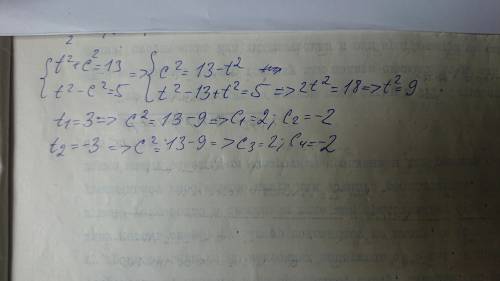 2
{t²+c²=13 => {c²=13-t²
{t²-c²=5 {t²-13+t²=5=>2t²=18=>t²=9
t₁=3=>c²=13-9=>c₁=2; c₂=-2
t₂=-3=>c²=13-9=>c₃=2; c₄=-2